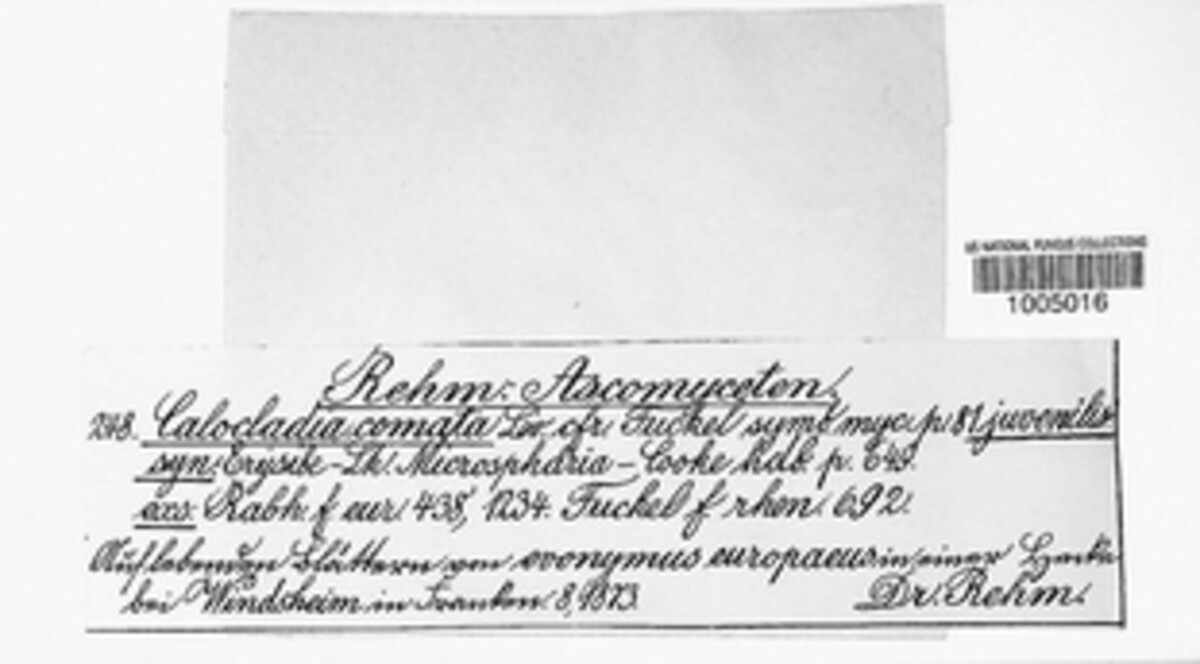 US NATIONAL FUNGUS COLLECTIONS
1005016
Rehm: Ascomyceten.
248. Calocladia comata Lév. cfr. Fuckel symb myc. p. 81 juvenilis
syn. Erysibe - Lk. Microsphäria - Cooke hdb. p. 649.
exs. Rabh. f. eur. 438, 1234. Fuckel f. rhen. 692.
Auf lebenden Blättern von evonymus europaeus in einer Hecke
bei Windsheim in Franken. 8, 1873.
Dr. Rehm.